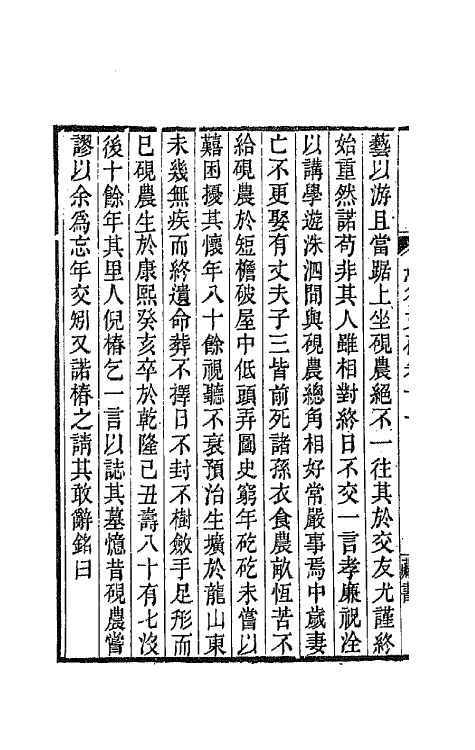 藝以游且當踞上坐硯農絕不一往其於交友尤謹終
始重然諾苟非其人雖相對終日不交一言孝廉祝洤
以講學遊洙泗間與硯農總角相好常嚴事焉中歲妻
亡不更娶有丈夫子三皆前死諸孫衣食農畝恆苦不
給硯農於短檐破屋中低頭弄圖史窮年矻矻未嘗以
囏困擾其懷年八十餘視聽不衰預治生壙於龍山東
未幾無疾而終遺命葬不擇日不封不樹斂手足形而
已硯農生於康熙癸亥卒於乾隆己丑壽八十有七沒
後十餘年其里人倪椿乞一言以誌其墓憶昔硯農嘗
謬以余爲忘年交矧又諾椿之請其敢辭銘曰